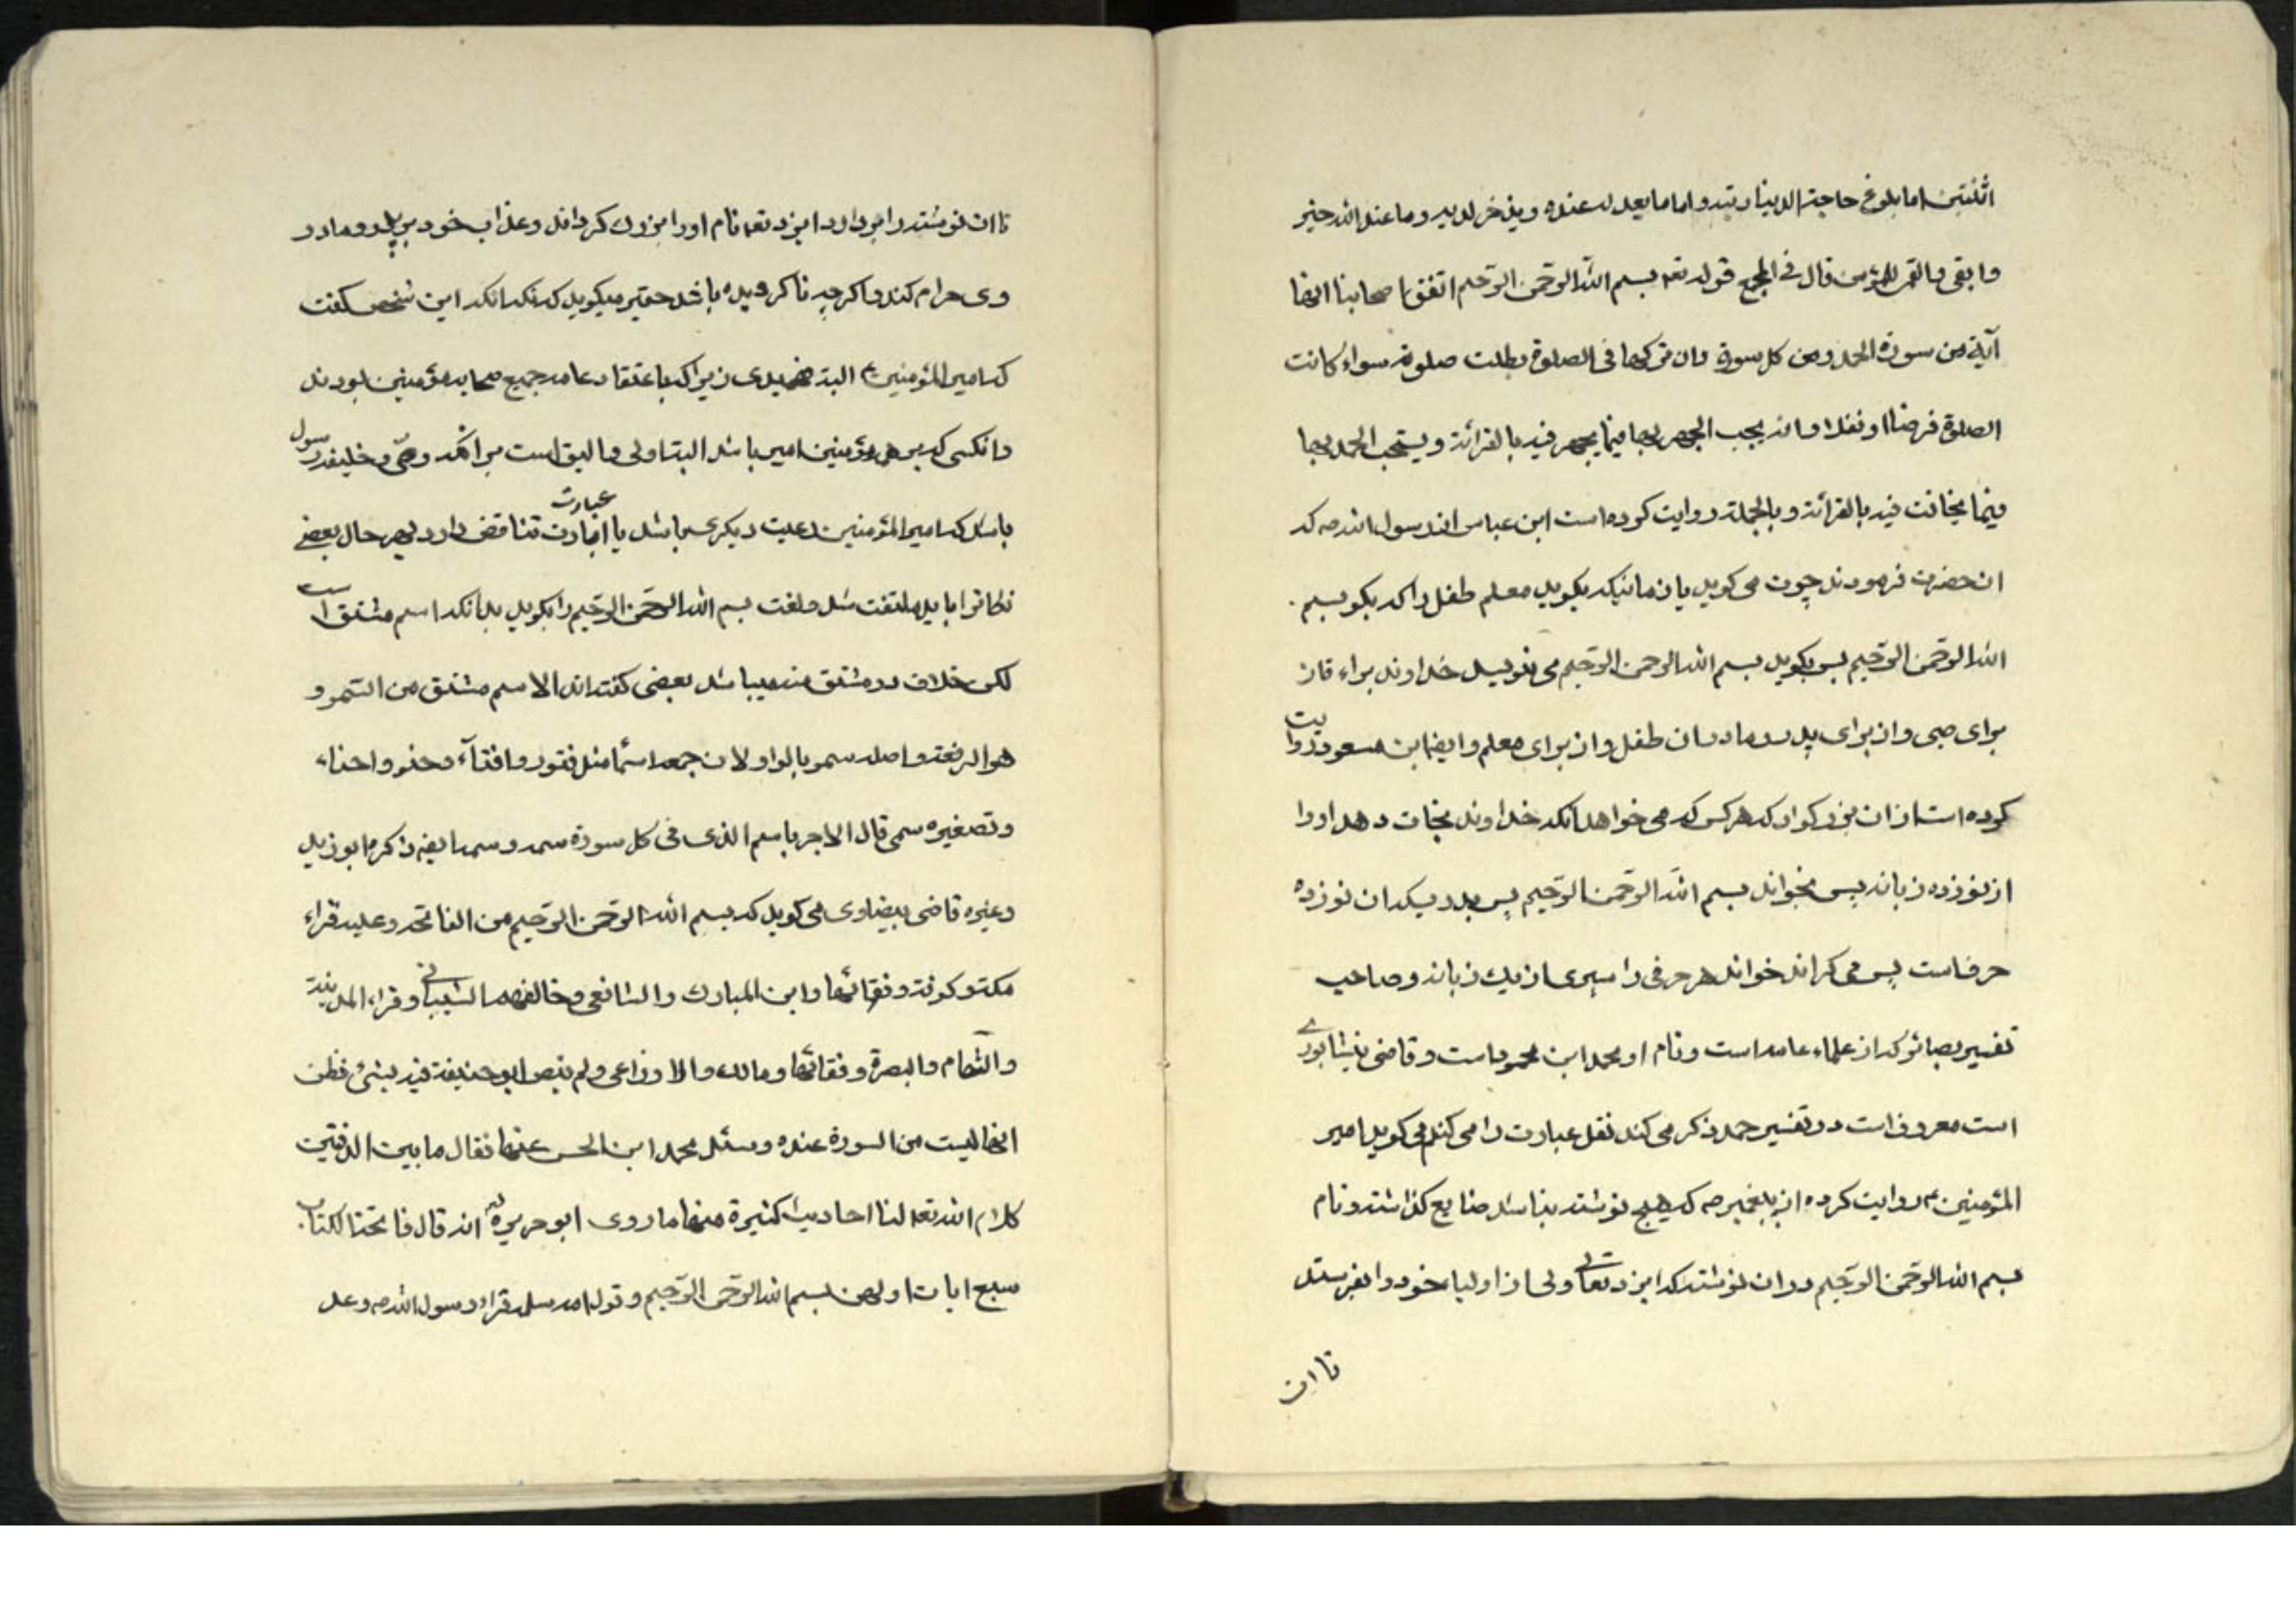 اثنتین اما بلوغ حاجته الدنیاویته و اما ما یعد له عنده ویذخر لدیه وما عند الله خیر
وابقی فالقمن للمؤمن قال فی المجمع قوله تعه بسم الله الرّحمن الرّحیم اتفق اصحابنا انها
آیة من سورة الحمد ومن کل سورة وان من ترکها فی الصلوة بطلت صلوته سواء کانت
الصلوة فرضا او نفلا وانه یجب الجهر بها فیما یجهر فیه بالقرائة ویستحب الجهر بها
فیما یخافت فیه بالقرائة وبالجملة روایت کرده است ابن عباس از رسول الله صه که
ان حضرت فرمودند چون می کوید یا زمانیکه بکوید معلم طفل را که بکو بسم
الله الرّحمن الرّحیم پس بکوید بسم الله الرحمن الرّحیم می نویسد خداوند براءة ازان
برای صبی وان برای پدر و مادر ان طفل وان برای معلم وایضا ابن مسعود روایت
کرده است از ان بزرکوار که هر کس که می خواهد انکه خداوند نجات دهد اورا
از نوزده زبانه پس بخواند بسم الله الرّحمن الرّحیم پس بدرستیکه ان نوزده
حرف است پس می کراند خواند هر حرفی را سپری از یک زبانه و صاحب
تفسیر بصائر که از علماء عامه است ونام او محمد ابن محمود است وقاضی نیشابوری
است معروف است در تفسیر حمد ذکر می کند نقل عبارت را می کنم می کوید امیر
المؤمنین ع روایت کرده از پیغمبر صه که هیچ نوشته نباشد ضایع کذاشته ونام
بسم الله الرّحمن الرّحیم در ان نوشته که ایزد تعالی ولی از اولیاء خود را بفرستد
تا ان
تا ان نوشته را بردارد ایزد تعه نام او را بزرک کرداند وعذاب خود بر پدر ومادر
وی حرام کند واکرچه نا کرویده باشد حقیر میکوید که نکه انکه این شخص کفت
که امیر المؤمنین ع البته فهمیدی زیرا که باعتقاد عامه جمیع صحابه مؤمنین بودند
وانکسی که بر هر مؤمنین امیر باشد البته اولی والیق است برانکه وصّی وخلیفه رسول
باشد که امیر المؤمنین رعیت دیکری باشد یا عبارت تناقض دارد بهر حال بعضی
نکاترا باید ملتفت شد ملغت بسم الله الرّحمن الرّحیم را بکوید بدانکه اسم مشتق است
لکن خلاف در مشتق منه میباشد بعضی کفته اند الاسم مشتق من السّمو و
هو الرفعة واصله سمو بالواو لان جمعه اسمأ مثل قنو واقنآء وحنو واحناء
وتصغیره سمی قال الاجر باسم الذی فی کل سورة سمه وسمه ایضه ذکره ابو زید
وغیره قاضی بیضاوی می کوید که بسم الله الرّحمن الرّحیم من الفاتحه وعلیه قراء
مکة وکوفة وفقائها وابن المبارک والشافعی وخالفهم الشیبانی وقراء المدینة
والشام والبصرة وفقائها ومالک والاوزاعی ولم ینص ابو حنیفة فیه بشئ فظن
انها لیست من السورة عنده وسئل محمد ابن الحسن عنها فقال ما بین الدفتین
کلام الله تعه لنا احادیث کثیرة منها ما روی ابو هریرة انه قال فاتحة الکتاب
سبع ایات اولهن بسم الله الرّحمن الرّحیم وقول ام سلمه قراء رسول الله صه وعد